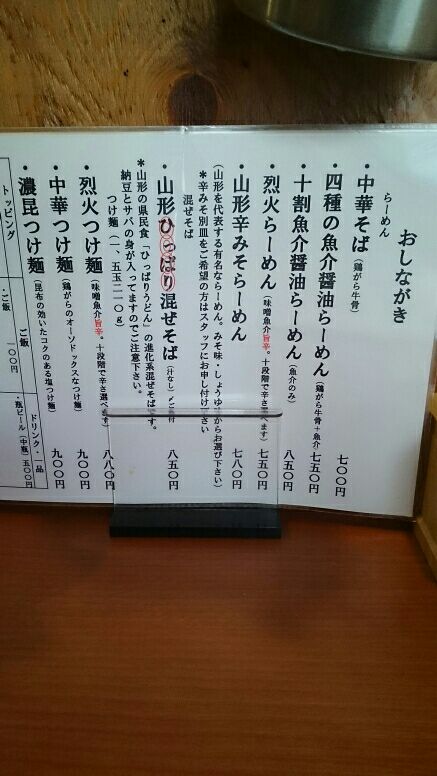 おしながき
らーめん
・中華そば（鶏がら牛骨） 七〇〇円
・四種の魚介醤油らーめん（鶏がら牛骨＋魚介） 七五〇円
・十割魚介醤油らーめん（魚介のみ） 八五〇円
・烈火らーめん（味噌魚介旨辛。十段階で辛さ選べます） 七五〇円
・山形辛みそらーめん 七八〇円
（山形を代表する有名ならーめん。みそ味・しょうゆ味からお選び下さい）
＊辛みそ別皿をご希望の方はスタッフにお申し付け下さい
混ぜそば
・山形ひっぱり混ぜそば（汁なし） 八五〇円
＊山形の県民食「ひっぱりうどん」の進化系混ぜそばです。
納豆とサバの身が入ってますのでご注意下さい。
つけ麺（1、五玉二一〇g）
・烈火つけ麺（味噌魚介旨辛。十段階で辛さ選べます 八八〇円
・中華つけ麺（鶏がらのオーソドックスなつけ麺） 九〇〇円
・濃昆つけ麺（昆布の効いたコクのある塩つけ麺） 九〇〇円
トッピング
ご飯
・ご飯 一〇〇円
ドリンク・一品
・瓶ビール（中瓶）五〇〇円